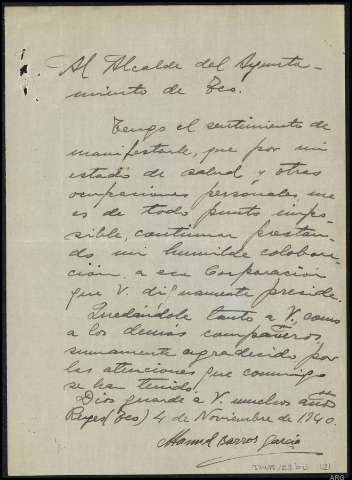 Al Alcalde del Ayunta-
miento de Teo.
Tengo el sentimiento de
manifestarle, que por mi
estado de salud y otras
ocupaciones personales me
es de todo punto impo-
sible, continuar prestan-
do mi humilde colabora-
ción a esa Corporación
que V. dignamente preside.
Quedándole tanto a V. como
a los demás compañeros,
sumamente agradecido por
las atenciones que conmigo
se han tenido.
Dios guarde a V. muchos años
Reyes (Teo) 4 de Noviembre de 1940.
Manuel Barros García
ARG